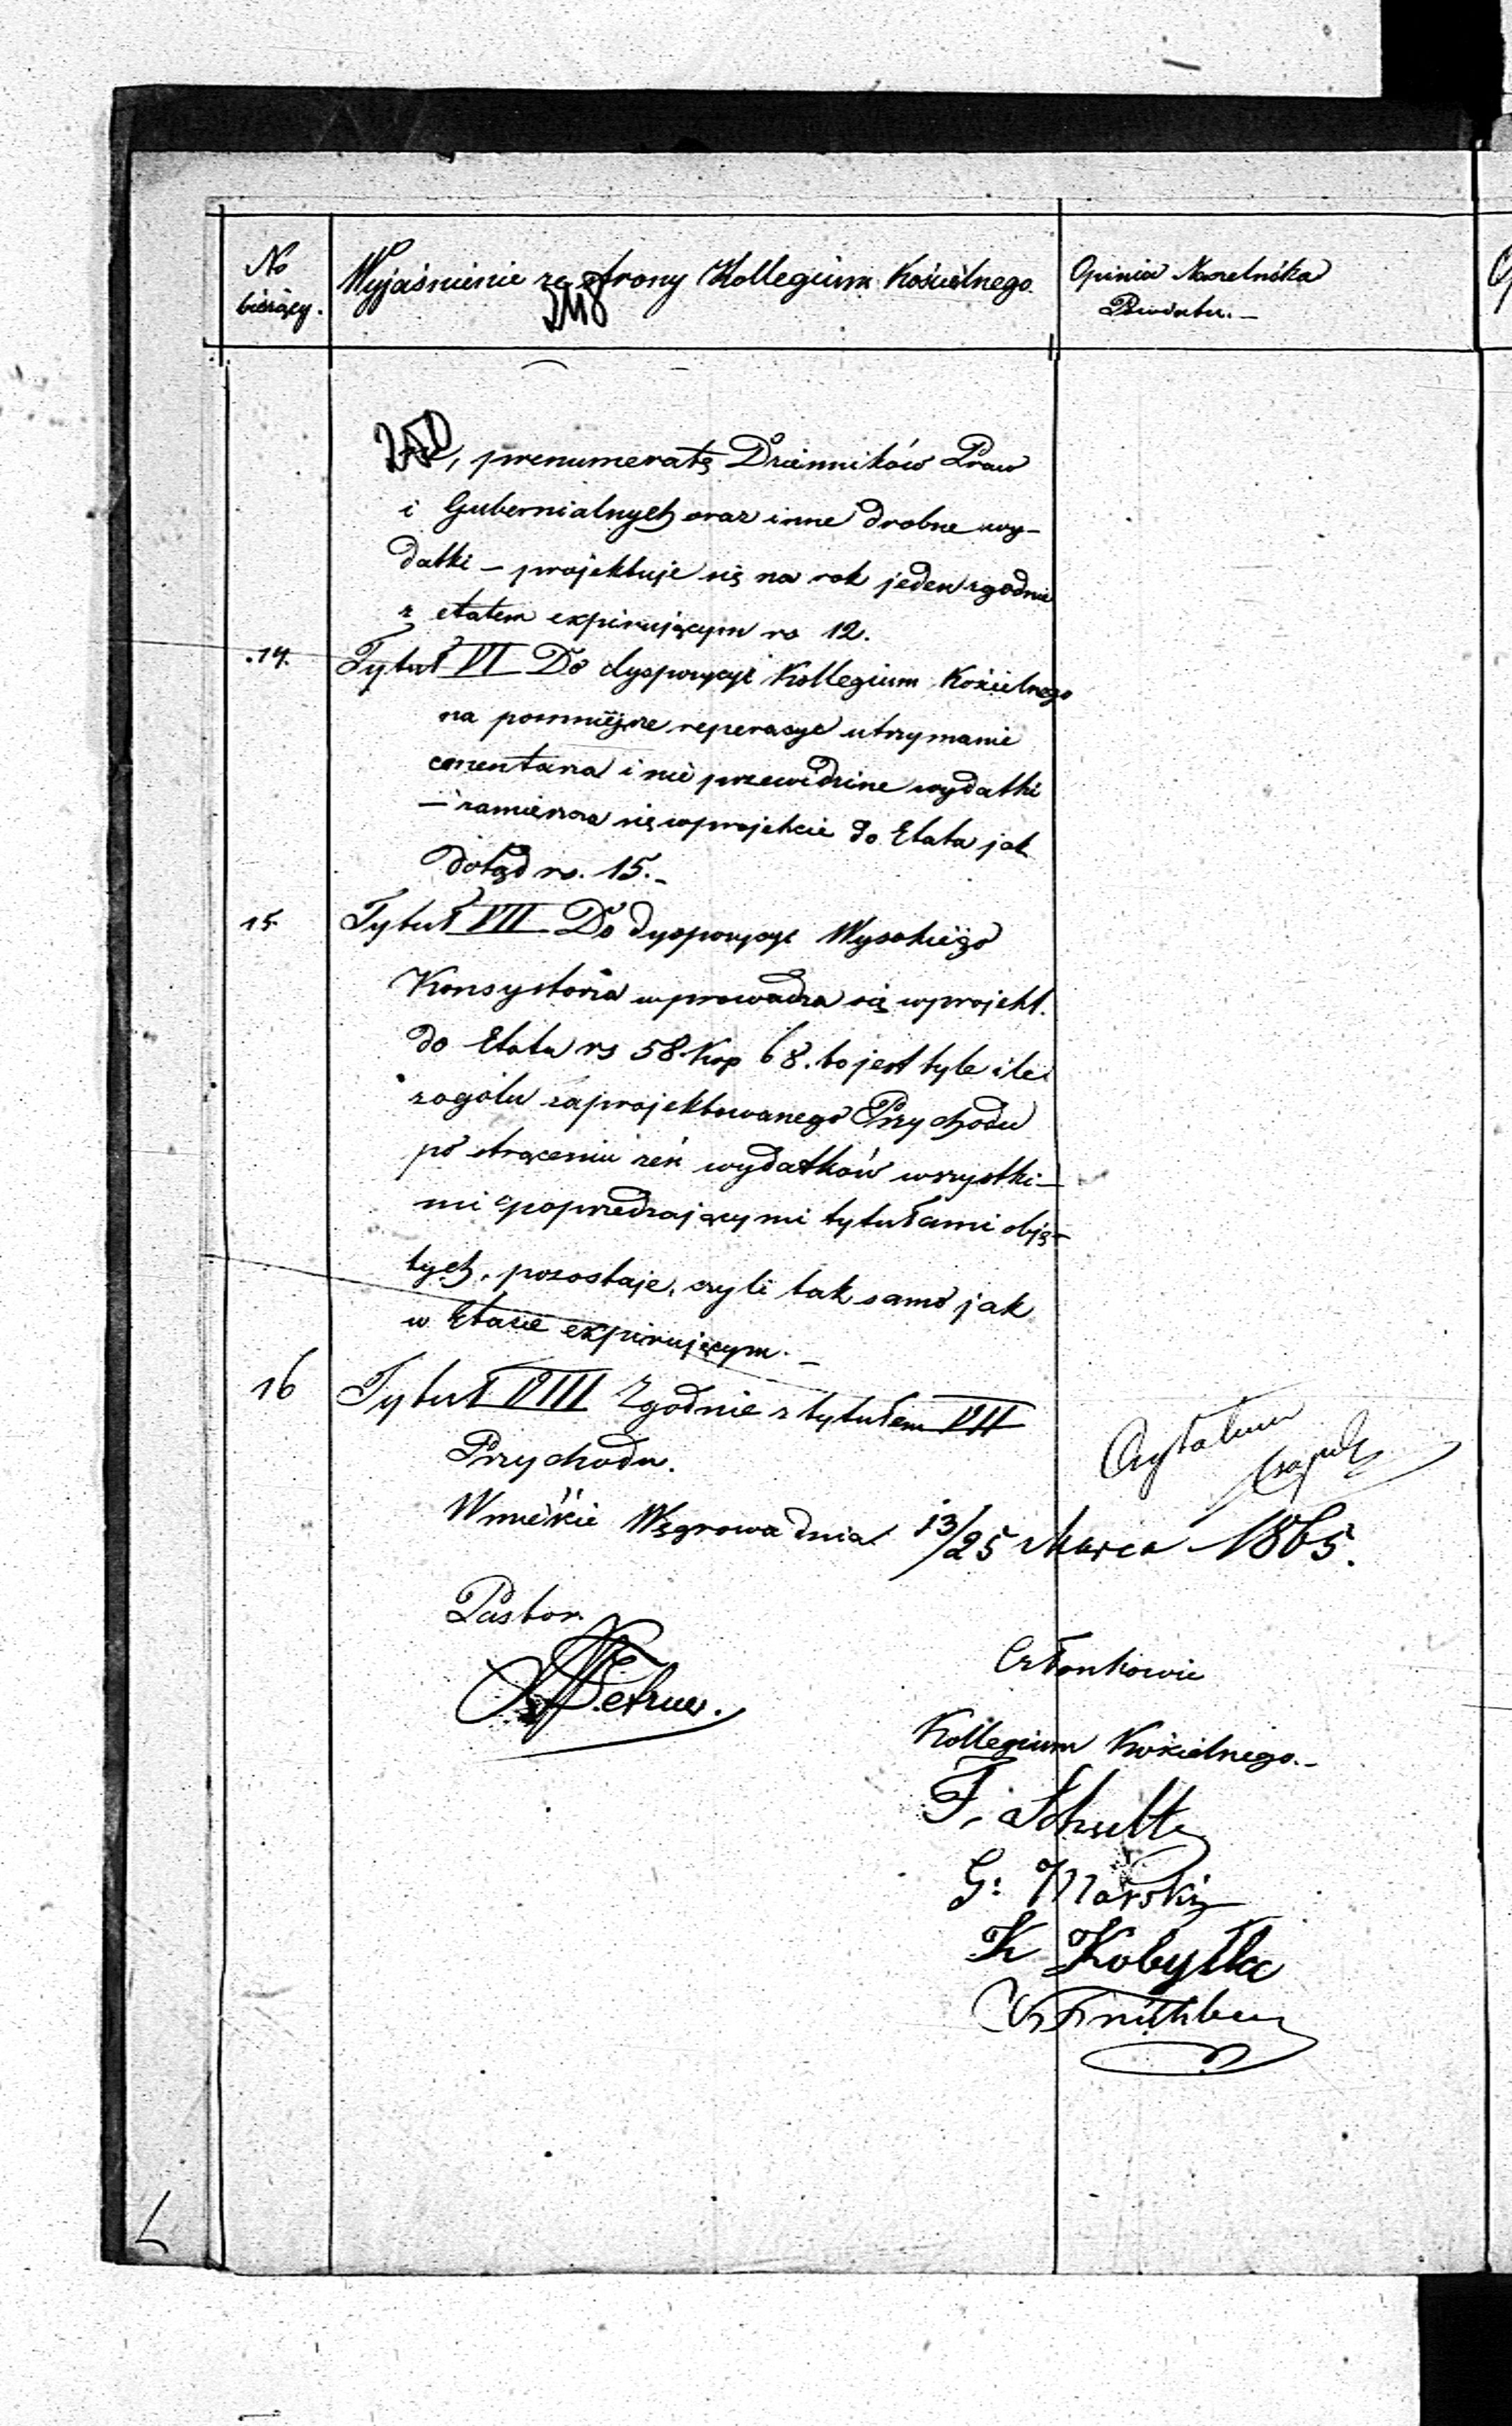 No
bieżący.
Wyjaśnienie ze strony Kollegium Kościelnego.
Opinia Naczelnika
Powiatu.—
248
250
, prenumeratę Dzienników Praw
i Gubernialnych oraz inne drobne wy-
datki – projektuje się na rok jeden zgodnie
z etatem expirującym rs 12.
14.
Tytuł VI Do dyspozycyi Kollegium Kościelnego
na pomniejsze reperacye utrzymanie
cmentarza i nieprzewidziane wydatki
– zamieszcza się w projekcie do Etatu jak
dotąd rs. 15.–
15
Tytuł VII Do dyspozycyi Wysokiego
Konsystorza wprowadza się w projekt.
do Etatu rs 58 kop 68. to jest tyle ile
z ogółu zaprojektowanego Przychodu
po strąceniu zeń wydatków wszystki-
mi poprzedzającymi tytułami obję-
tych, pozostaje, czyli tak samo jak
w Etacie expirującym.–
16
Tytuł VIII Zgodnie z tytułem VII
Przychodu.
W mieście Węgrowa dnia 13/25 Marca 1865.
Czytałem
Pastor.
Członkowie
Kollegium Kościelnego.–
F. Schultz
G: Marski
K Kobyłka